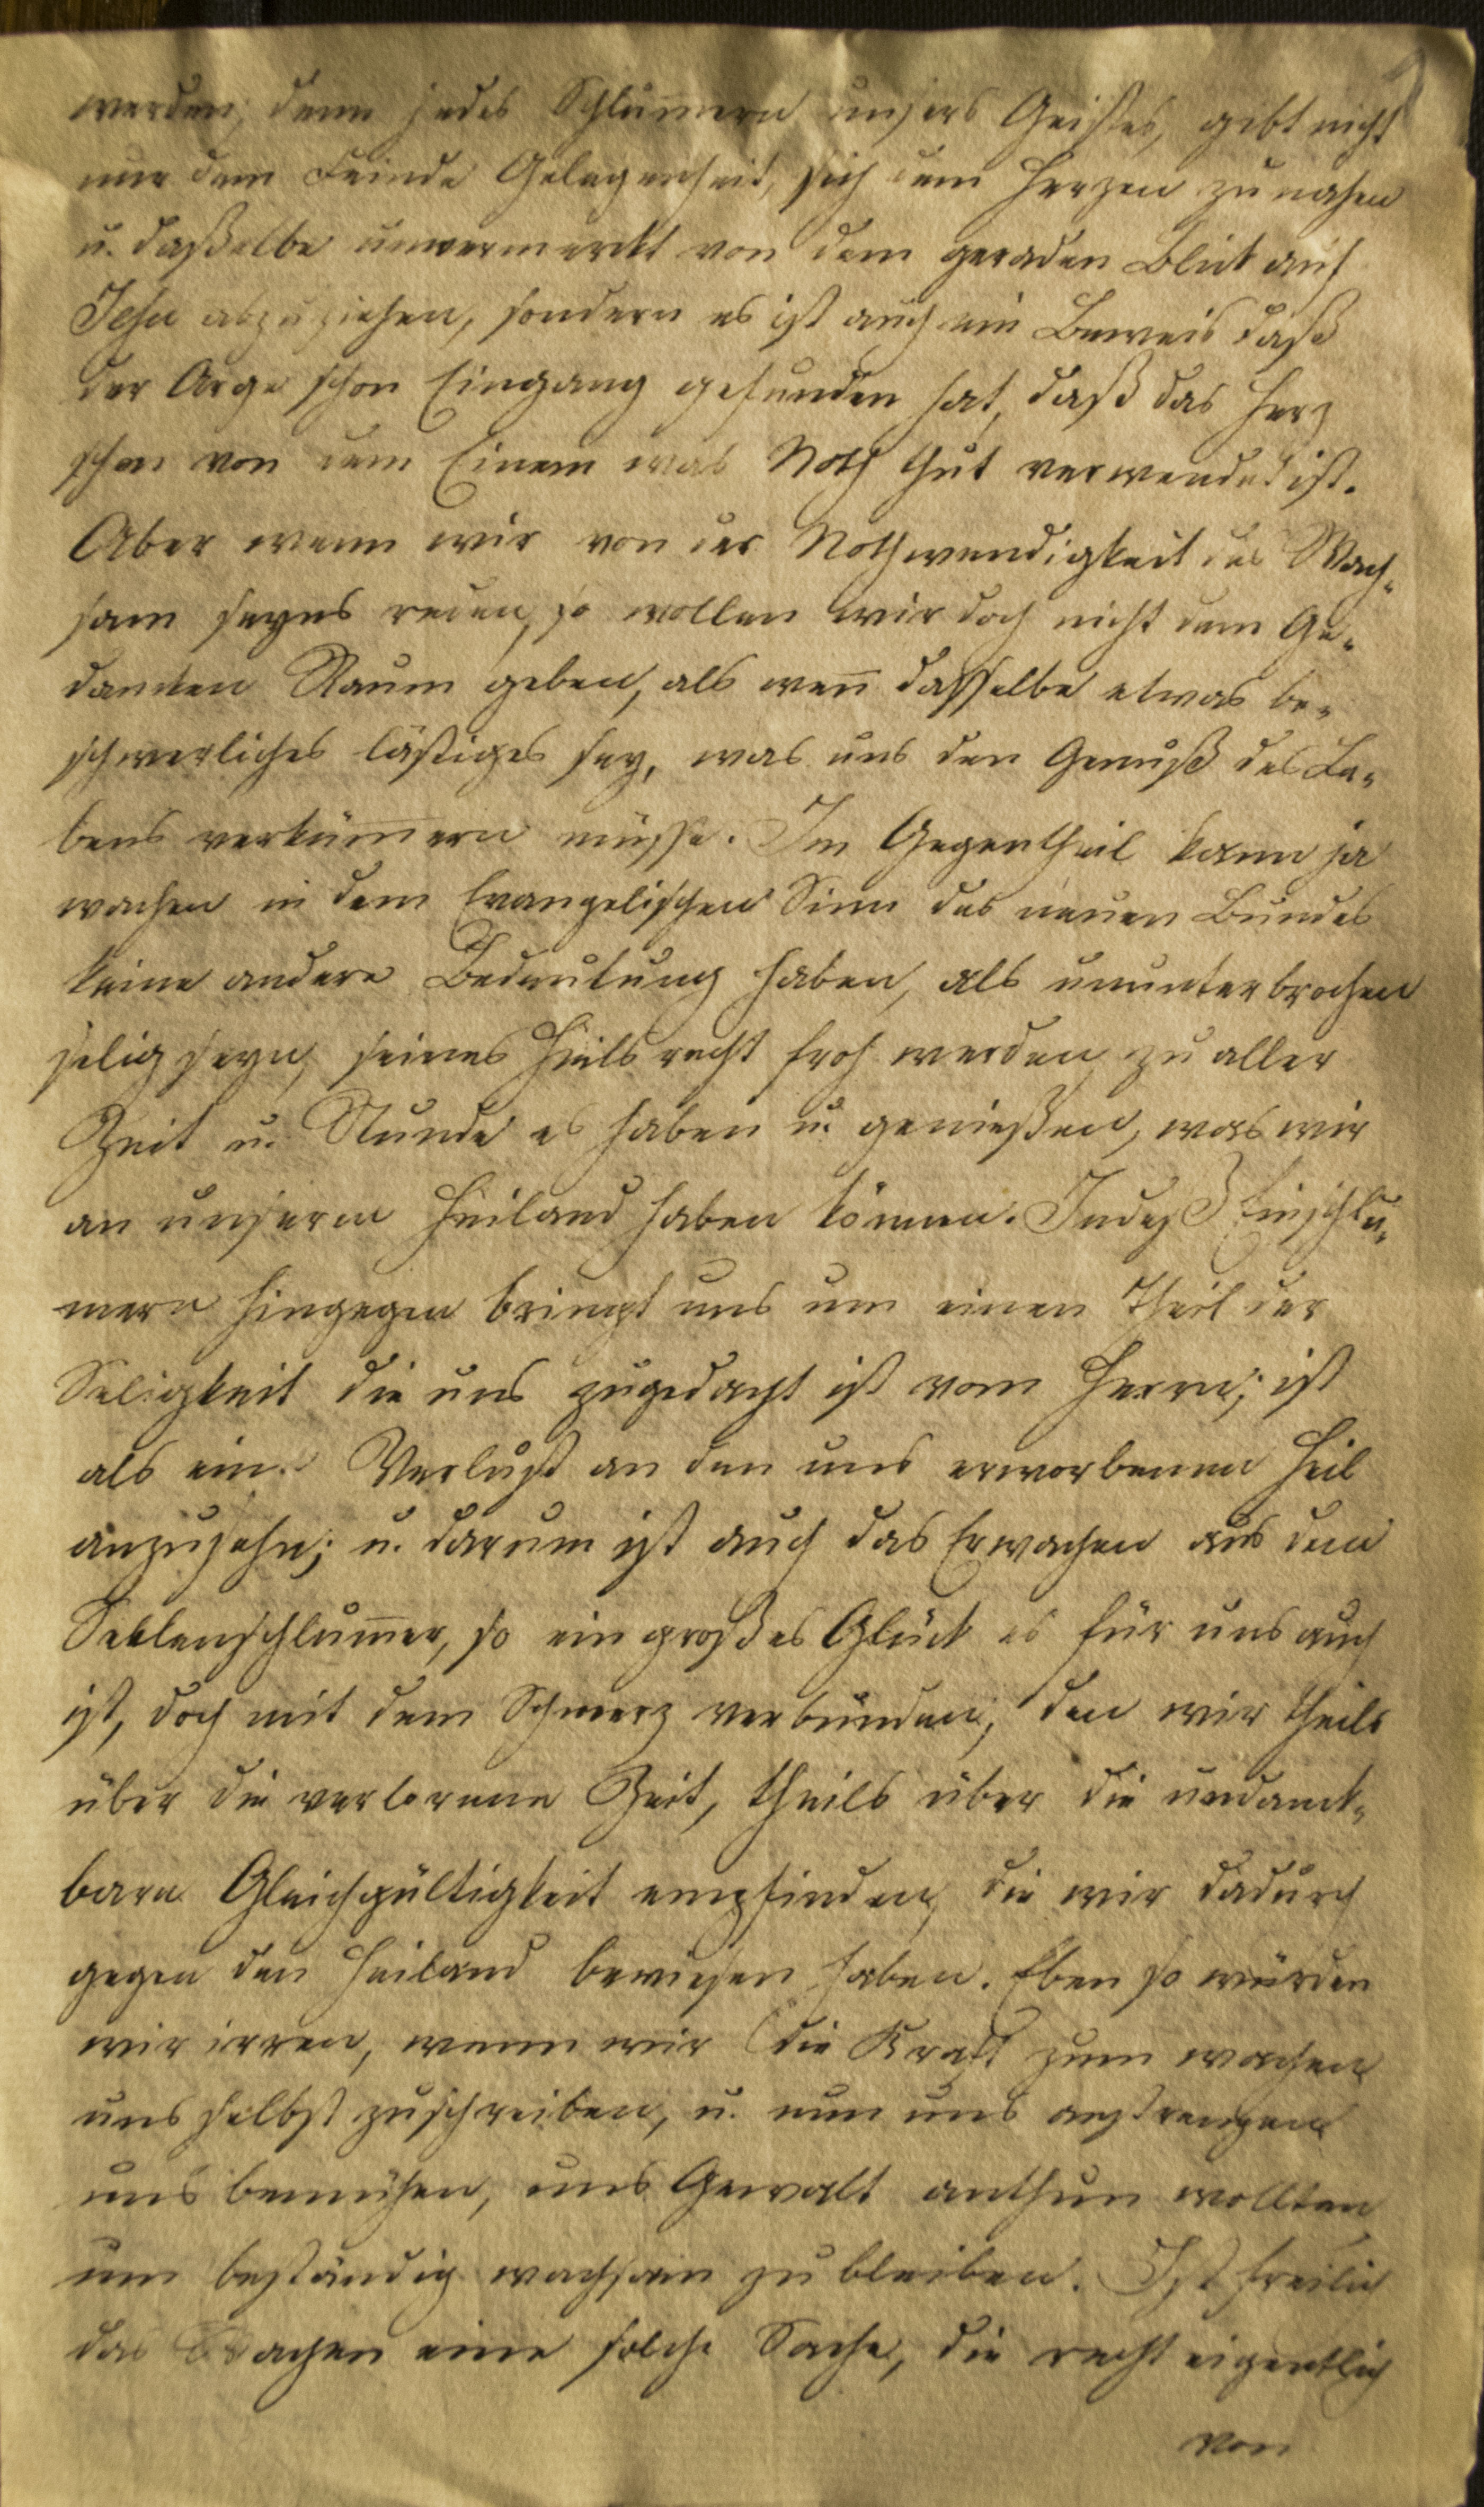 werden; denn jedes Schlum̅ern unsers Geistes, gibt nicht
nur dem Feinde Gelegenheit, sich dem Herzen zu nahen
u. daßelbe unvermerckt von dem geraden Blick auf
Jesu abzuziehen, sondern es ist auch ein Beweis daß
der Arge schon Eingang gefunden hat, daß das Herz
schon von dem Einem was Noth thut verwendet ist.
Aber wenn wir von der Nothwendigkeit des Wach-
sam seyns reden, so wollen wir doch nicht dem Ge-
dancken Raum geben, als wen̅ dasselbe etwas be-
schwerliches lästiges sey, was uns den Genuß des Le-
bens verküm̅ern müsse. Im Gegentheil kann ja
wachen in dem Evangelischen Sinn des neuen Bundes
keine andere Bedeutung haben, als ununterbrochen
selig seyn, seines Heils recht froh werden, zu aller
Zeit u. Stunde es haben u. genießen, was wir
an unserm Heiland haben können. Indeß Einschlu-
mern hingegen bringt uns um einen Theil der
Seligkeit die uns zugedacht ist vom Herrn; ist
als ein Verlust an den uns erworbenen Heil
anzusehn; u. darum ist auch das Erwachen aus dem
Seelenschlum̅er, so ein großes Glück es für uns auch
ist, doch mit dem Schmerz verbunden, den wir theils
über die verlorene Zeit, theils über die undanck-
bare Gleichgültigkeit empfinden, die wir dadurch
gegen den Heiland bewiesen haben. Eben so würden
wir irren, wenn wir die Kraft zum wachen
uns selbst zuschreiben, u. nun uns anstrengen
uns bemühen, uns Gewalt anthun wollten
um beständig wachsam zu bleiben. Ist freilich
das Wachen eine solche Sache, die recht eigentlich
von